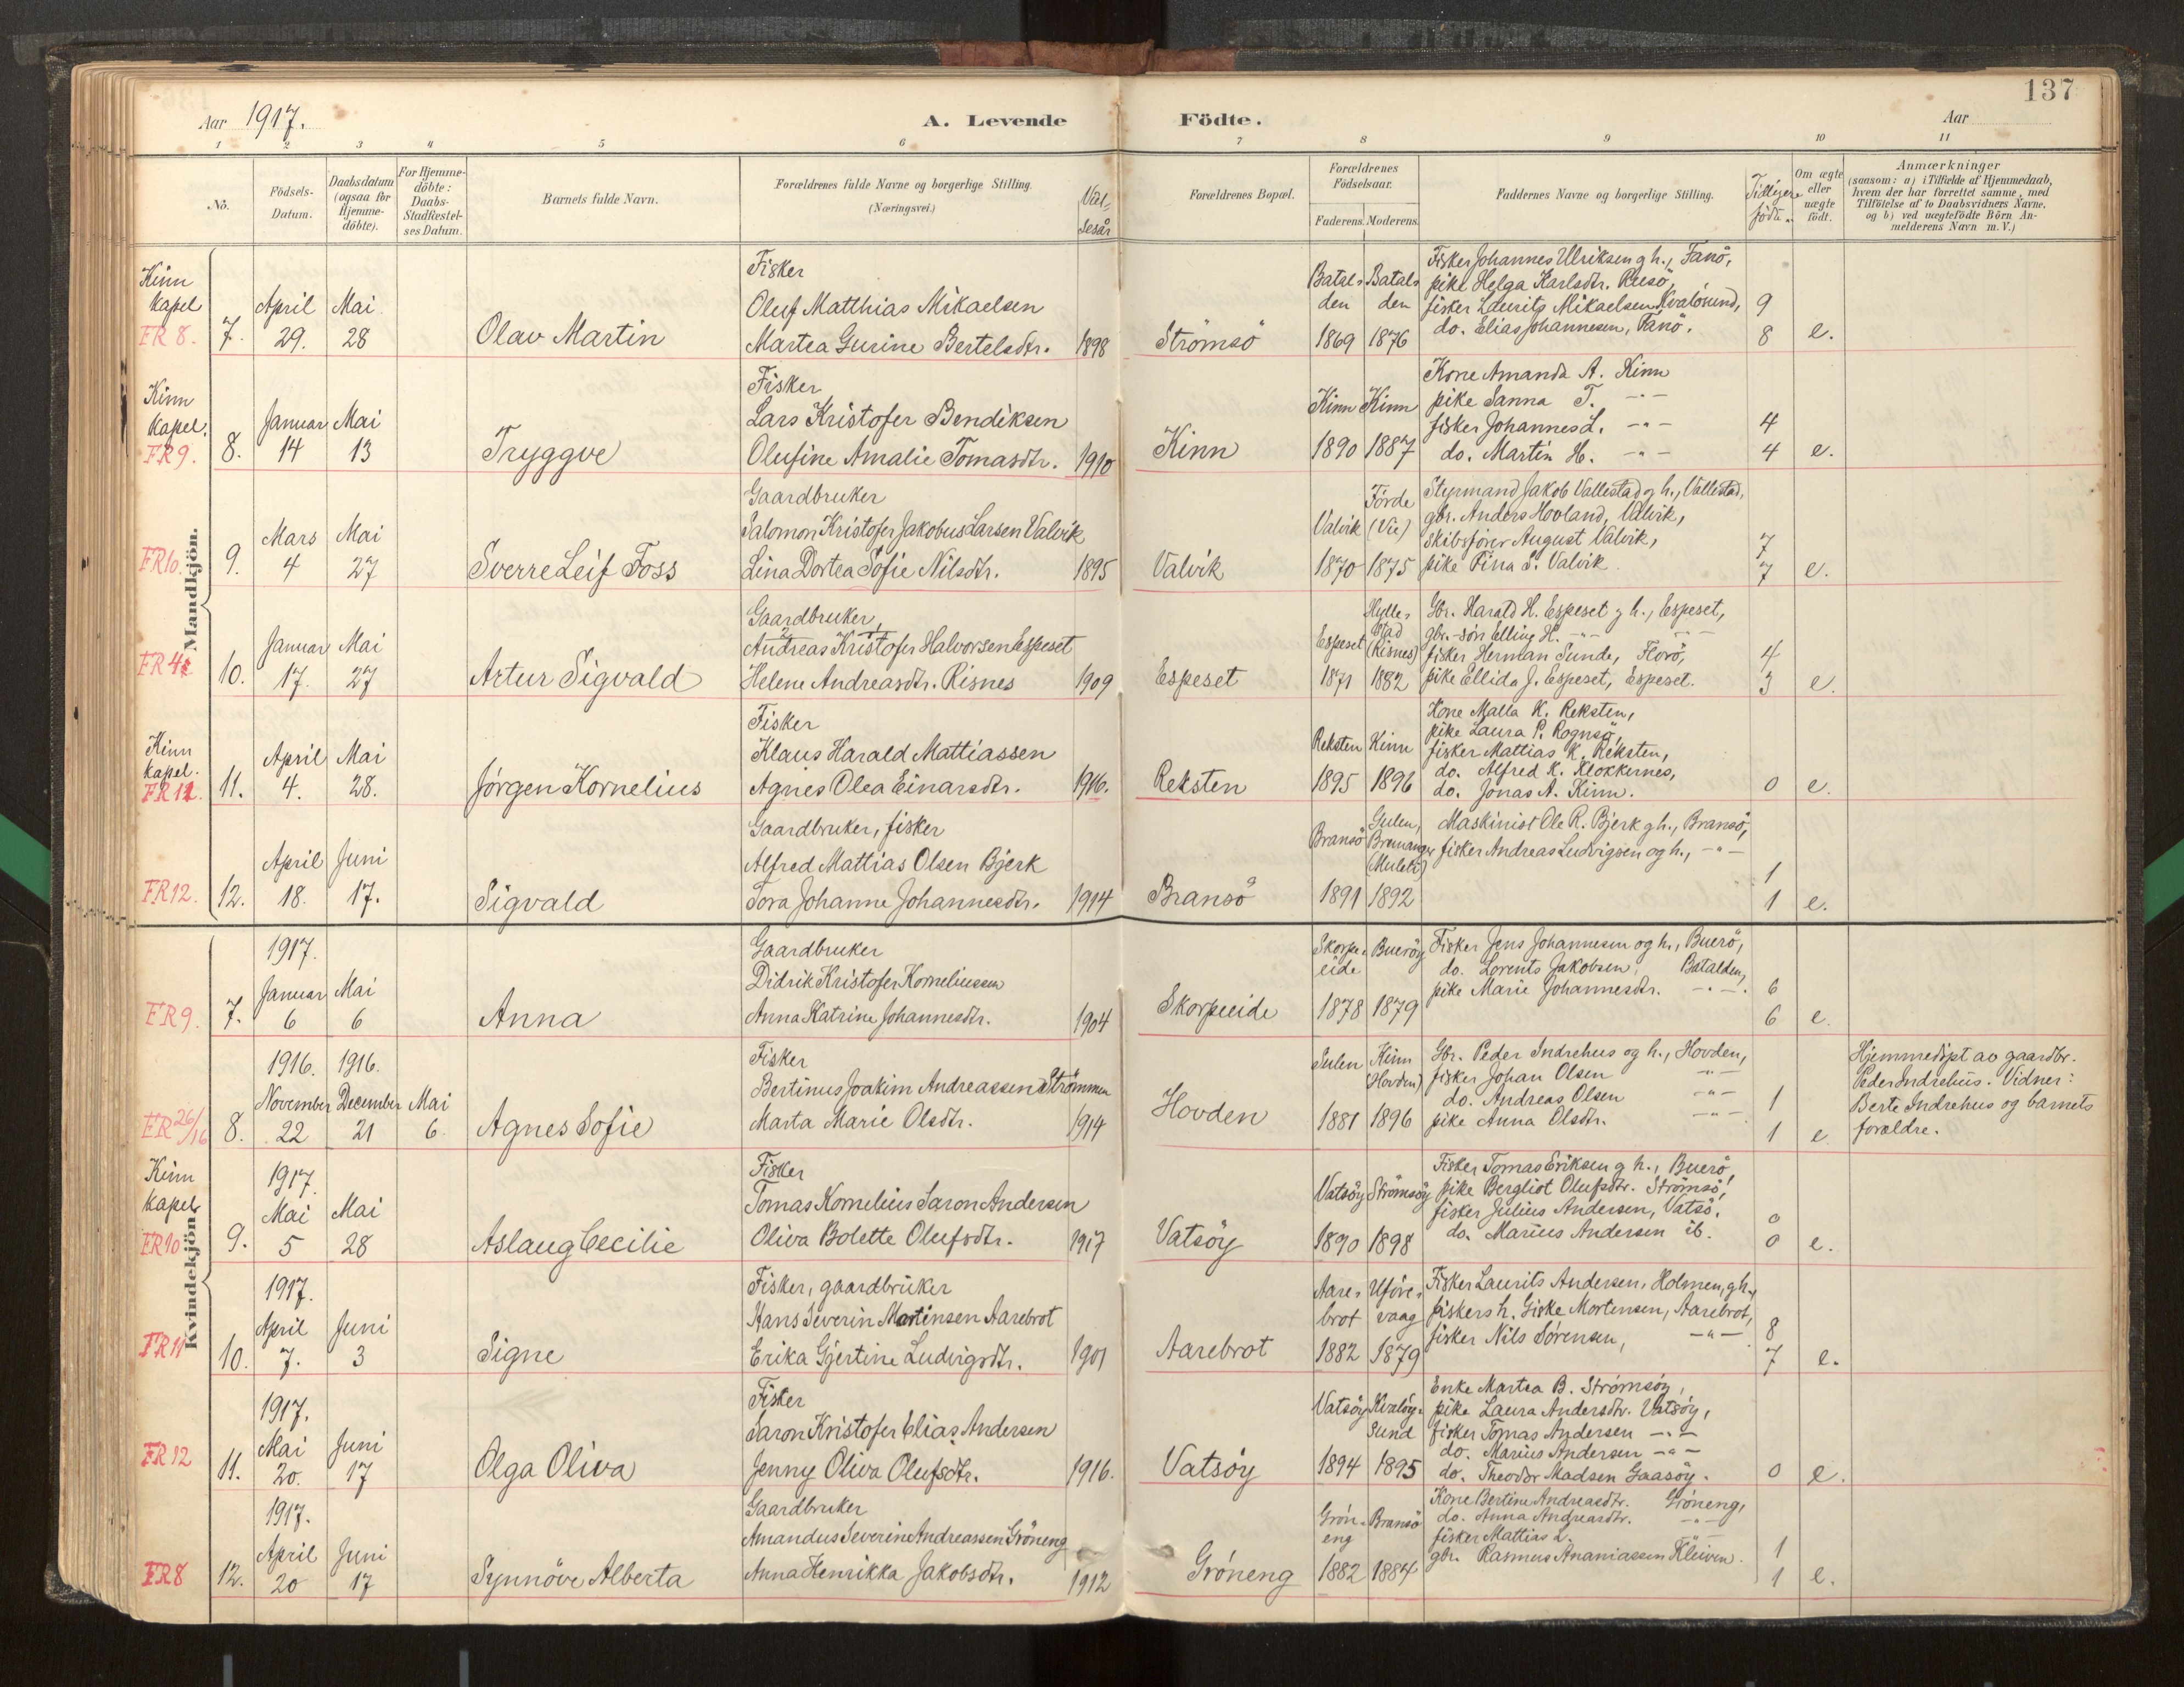 137
Aar 1917.
A. Levende
Födte.
Aar
1 2 3 4 5 6 7 8 9 10 11
Nô.
Födsels-Datum.
Daabsdatum (ogsaa for Hjemme-döbte).
For Hjemme-döbte: Daabs-Stadfæstel-ses Datum.
Barnets fulde Navn.
Forældrenes fulde Navne og borgerlige Stilling. (Næringsvei.)
Vielsesår
Forældrenes Bopæl.
Forældrenes Födselsaar.
Faderens. Moderens.
Faddernes Navne og borgerlige Stilling.
Tidligere födte.
Om ægte eller uægte födt.
Anmærkninger
(saasom: a) i Tilfælde af Hjemmedaab, hvem der har forrettet samme, med Tilföielse af to Daabsvidners Navne, og b) ved uægtefödte Börn An-melderens Navn m. V.)
Mandkjön.
Kinn kapel
FR 8.
7.
April 29.
Mai 28
Olav Martin
Fisker
Oluf Matthias Mikaelsen
Martea Gurine Bertelsdtr.
1898
Strömsö
Batalden 1869
Batalden 1876
Fisker Johannes Ulriksen g h., Fanö,
pike Helga Karlsdtr. Reksö,
fisker Laurits Mikaelsen Kvalösund,
do. Elias Johannesen, Fanö.
9
8
e.
Kinn kapel.
FR 9.
8.
Januar 14
Mai 13
Tryggve
Fisker
Lars Kristofer Bendiksen
Olufine Amalie Tomasdtr.
1910
Kinn
Kinn 1890
Kinn 1887
Kone Amanda A. Kinn
pike Sanna T. -"-
fisker Johannes L. -"-
do. Martin H. -"-
4
4
e.
FR 10.
9.
Mars 4
Mai 27
Sverre Leif Foss
Gaardbruker
Salomon Kristofer Jakobus Larsen Valvik
Lina Dortea Sofie Nilsdtr.
1895
Valvik
Valvik 1870
Förde (Vie) 1875
Styrmand Jakob Vallestad og h., Vallestad,
gbr. Anders Hovland, Valvik,
skibsförer August Valvik,
pike Fina S. Valvik.
7
7
e.
10.
Januar 17.
Mai 27
Artur Sigvald
Gaardbruker,
Andreas Kristofer Halvorsen Espeset
Helene Andreasdtr. Risnes
1909
Espeset
Espeset 1871
Hyllestad (Risnes) 1882
Gbr. Harald H. Espeset g h., Espeset,
gbr.-sön Elling H. -"- -"-
fisker Herman Sunde, Florö,
pike Ellida J. Espeset, Espeset.
4
3
e.
Kinn kapel.
11.
April 4.
Mai 28.
Jørgen Kornelius
Fisker
Klaus Harald Mattiassen
Agnes Olea Einarsdtr.
1916.
Reksten
Reksten 1895
Kinn 1896
Kone Malla K. Reksten,
pike Laura P. Rognsö,
fisker Mattias K. Reksten,
do. Alfred K. Klokkernes,
do. Jonas A. Kinn.
0
e.
FR 12.
12.
April 18.
Juni 17.
Sigvald
Gaardbruker, fisker
Alfred Mattias Olsen Bjerk
Tora Johanne Johannesdtr.
1914
Bransö
Bransö 1891
Gulen, Bremanger 1892
Maskinist Ole R. Bjerk g h., Bransö,
fisker Andreas Ludvigsen og h., -"-
1
1
e.
Kvindekjön
FR 9.
7.
1917. Januar 6
Mai 6
Anna
Gaardbruker
Didrik Kristofer Korneliussen
Anna Katrine Johannesdtr.
1904
Skorpeeide
Skorpeeide 1878
Bueröy 1879
Fisker Jens Johannesen og h., Buerö,
do. Lorents Jakobsen, Batalden,
pike Marie Johannesdtr. -"-.
6
6
e.
FR 26/16
8.
1916. November 22
1916. December 21
Mai 6.
Agnes Sofie
Fisker
Bertinus Joakim Andreassen Strömmen
Marta Marie Olsdtr.
1914
Hovden
Sulen 1881
Kinn (Hovden) 1896
Gbr. Peder Indrehus og h., Hovden,
fisker Johan Olsen -"-
do. Andreas Olsen -"-
pike Anna Olsdtr. -"-
1
1
e
Hjemmedöpt av gaardbr.
Peder Indrehus. Vidner:
Berte Indrehus og barnets
forældre.
Kinn kapel
FR 10
9.
1917. Mai 5
Mai 28
Aslaug Cecilie
Fisker
Tomas Kornelius Saron Andersen
Oliva Bolette Olufsdtr.
1917
Vatsöy
Vatsöy 1890
Strömsöy 1898
Fisker Tomas Eriksen g h., Buerö,
pike Bergliot Olufsdtr. Strömsö,
fisker Julius Andersen, Vatsö,
do. Marius Andersen ib.
0
0
e.
FR 11
10.
1917. April 7.
Juni 3
Signe
Fisker, gaardbruker
Hans Severin Martinsen Aarebrot
Erika Gjertine Ludvigsdtr.
1901
Aarebrot
Aarebrot 1882
Uförevaag 1879
Fisker Laurits Andersen, Holmen, g h.,
fiskers h. Giske Mortensen, Aarebrot,
fisker Nils Sørensen, -"-
8
7
e.
FR 12
11.
1917. Mai 20.
Juni 17
Olga Oliva
Fisker
Saron Kristofer Elias Andersen
Jenny Oliva Olufsdtr.
1916.
Vatsöy
Vatsöy 1894
Kvalöysund 1895
Enke Martea B. Strömsöy,
pike Laura Andersdtr. Vatsöy,
fisker Tomas Andersen -"-
do. Marius Andersen -"-
do. Theodor Madsen Gaasöy.
0
e.
FR 8
12.
1917. April 20
Juni 17
Synnöve Alberta
Gaardbruker
Amandus Severin Andreassen Gröneng
Anna Henrikka Jakobsdtr.
1912
Gröneng
Gröneng 1882
Bransö 1884
Kone Bertine Andreasdtr. Gröneng,
do. Anna Andreasdtr. -"-
fisker Mattias L. -"-
gbr. Rasmus Ananiassen Kleiven.
1
1
e.